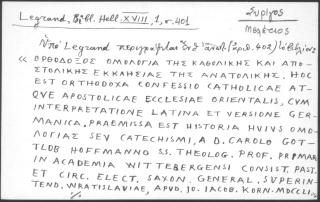 Legrand, Bibl. Hell. XVIII, 1, σ. 401
Συρίγος
Μελέτιος
Ὑπὸ Legrand περιγράφεται ὑπ' ἀριθ. (ἀριθ. 402)
« ΟΡΘΟΔΟΞΟΣ ΟΜΟΛΟΓΙΑ ΤΗΣ ΚΑΘΟΛΙΚΗΣ ΚΑΙ ΑΠΟ-
ΣΤΟΛΙΚΗΣ ΕΚΚΛΗΣΙΑΣ ΤΗΣ ΑΝΑΤΟΛΙΚΗΣ. HOC
EST ORTHODOXA CONFESSIO CATHOLICAE AT-
QVE APOSTOLICAE ECCLESIAE ORIENTALIS, CVM
INTERPRETATIONE LATINA ET VERSIONE GER-
MANICA. PRAEMISSA EST HISTORIA HVIVS ΟΜΟ-
ΛΟΓΙΑΣ SEV CATECHISMI, A D. CAROLO GOT-
TLOB HOFFMANNO SS. THEOLOG. PROF. PRIMAR
IN ACADEMIA WITTEBERGENSI CONSIST. PAST.
ET CIRC. ELECT. SAXON. GENERAL. SVPERIN-
TEND. WRATISLAVIAE, APVD. IO. IACOB. KORN. MDCCLI.